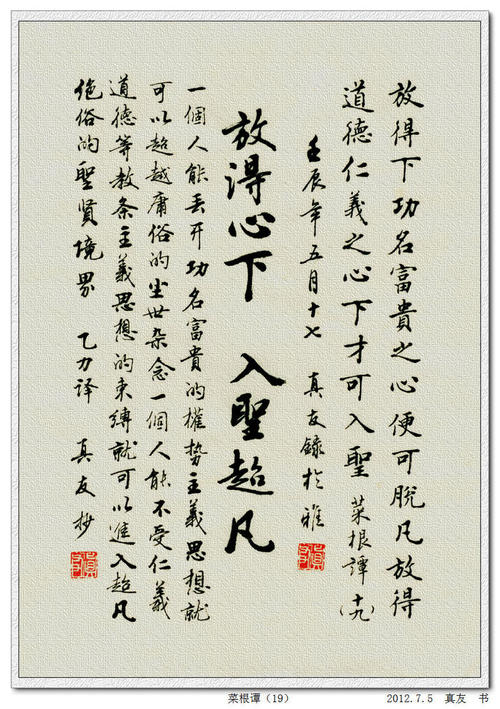 放得下功名富貴之心便可脫凡放得
道德仁義之心下才可入聖 菜根譚(十九)
壬辰年五月十七 真友錄於雅
放得心下 入聖超凡
一個人能丟開功名富貴的權势主義思想就
可以超越庸俗的尘世杂念一個人能不受仁義
道德等教条主義思想的束縛就可以進入超凡
绝俗的聖賢境界 乙力译 真友抄
菜根谭(19) 2012.7.5 真友 书